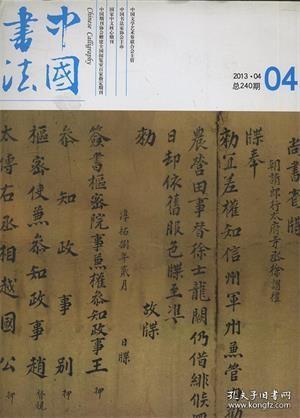 中國書法
Chinese Calligraphy
中国文学艺术界联合会主管
中国书法家协会主办
国家中文核心期刊
2013·04
总240期
04
尚書省牒
郎行太府寺丞徐謂禮
牒奉
勅宜差權知信州軍州兼管
農營田事替徐士龍闕仍借緋候
日却依舊服色牒至準
勅
故牒
淳祐捌年貳月 日牒
簽書樞密院事兼權叅知政事王 押
叅知政事别 押
樞密使兼叅知政事趙 督視
太傅右丞相越國公 押
孔夫子旧书网